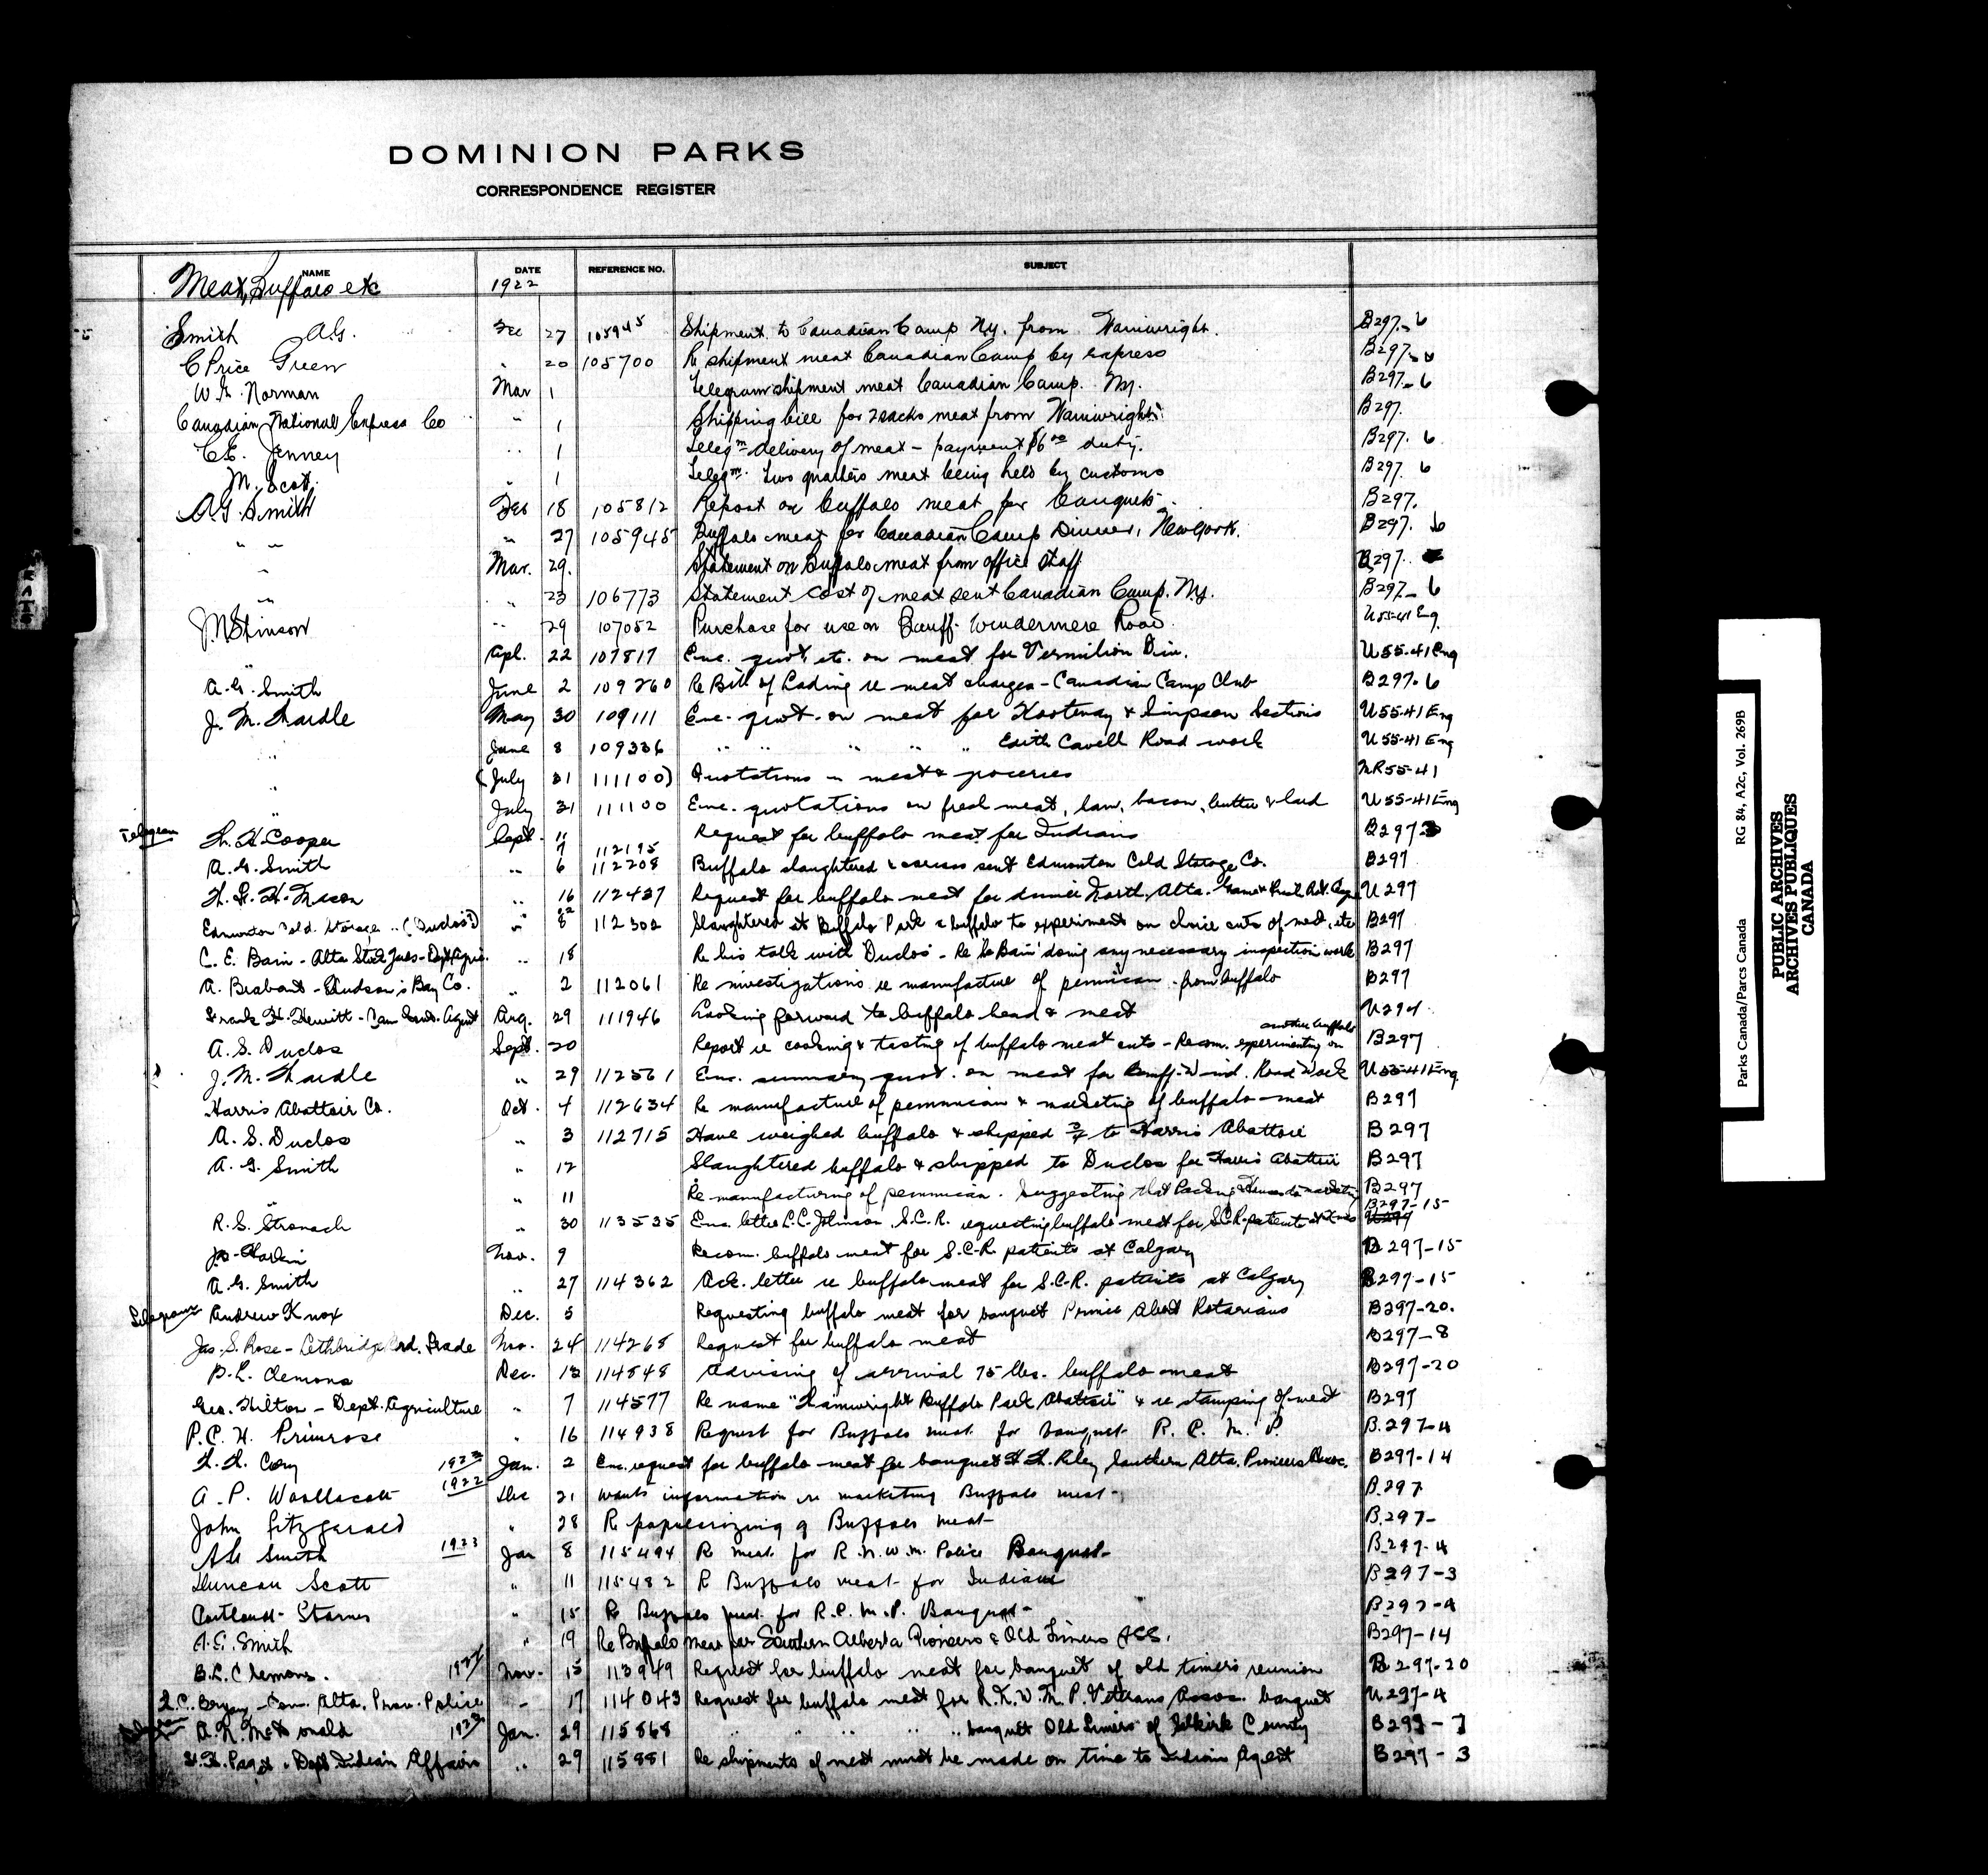 DOMINION PARKS
CORRESPONDENCE REGISTER
NAME DATE REFERENCE NO. SUBJECT
Meat, Buffalo etc 1922
Smith A.G. Feb 27 105945 Shipment to Canadian Camp N.y. from Wainwright. B297-6
C Price Green " 20 105700 Re shipment meat Canadian Camp by express B297-6
W.G. Norman Mar 1 Telegram shipment meat Canadian Camp. Ny. B297-6
Canadian National Express Co " 1 Shipping bill for 2 sacks meat from Wainwright B297.
C.E. Jenney " 1 Telegm delivery of meat - payment $6.00 duty. B297. 6
M. Scot. " 1 Telegm. Two quarters meat being held by customs B297. 6
A.G. Smith Feb 18 105812 Report on buffalo meat for banquets. B297.
" " " 27 105945 Buffalo meat for Canadian Camp Dinner, New York. B297. 6
" Mar. 29. Statement on Buffalo meat from office staff B297.
" " 23 106773 Statement cost of meat sent Canadian Camp. N.y. B297-6
J.M. " 29 107052 Purchase for use on Banff-Windermere Road. U55-41 Eng.
" Apl. 22 107817 Enc. quot. etc. on meat for Vermilion Div. U55-41 Eng
A.G. Smith June 2 109260 Re Bill of Lading re meat charges - Canadian Camp Club B297-6
J. M. Wardle May 30 109111 Enc. quot. on meat for Kootenay & Simpson Sections U55-41 Eng
" June 8 109336 " " " " " Edith Cavell Road work U55-41 Eng
" (July 31 111100) Quotations on meat & groceries MR55-41
" July 31 111100 Enc. quotations on fresh meat, ham, bacon, butter & lard U55-41 Eng
Telegram H. H. Cooper Sept. 11 Request for buffalo meat for Indians B297-3
7 112195
A.G. Smith " 6 112208 Buffalo slaughtered & carcass sent Edmonton Cold Storage Co. B297
H. G. H. " 16 112437 Request for buffalo meat for dinner North. Alta. Game & Fish Prot. U297
Edmonton Cold Storage " (Duclos?) " 8 112302 Slaughtered at Buffalo Park a buffalo to experiment on choice cuts of meat, etc B297
C. E. Bain - Alta Stock Yards - Dept Agric. " 18 Re his talk with Duclos - Re Dr Bain doing any necessary inspection work B297
A. Brabant - Hudson's Bay Co. " 2 112061 Re investigations re manufacture of pemmican from buffalo B297
Frank H. Hewitt - Can Govt. Agent Aug. 29 111946 Looking forward to buffalo head & meat U297
A. S. Duclos Sept. 20 Report re cooking & testing of buffalo meat cuts - Recom. experimenting on another buffalo B297
J. M. Wardle " 29 112561 Enc. summary quot. on meat for Banff-Wind. Road Work U55-41 Eng.
Harris Abattoir Co. Oct. 4 112634 Re manufacture of pemmican & marketing of buffalo meat B297
A. S. Duclos " 3 112715 Have weighed buffalo & shipped to Harris Abattoir B297
A. G. Smith " 12 Slaughtered buffalo & shipped to Duclos for Harris Abattoir B297
" " 11 Re manufacturing of pemmican. Suggesting that Packing Houses do marketing B297
R. S. Stronach " 30 113535 Enc. letter L.C. Johnson S.C.R. requesting buffalo meat for S.C.R. patients at Xmas B297-15
Harkin Nov. 9 Recom. buffalo meat for S.C.R. patients at Calgary B297-15
A. G. Smith " 27 114362 Ack. letter re buffalo meat for S.C.R. patients at Calgary B297-15
Telegram Andrew Knox Dec. 5 Requesting buffalo meat for banquet Prince Albert Rotarians B297-20.
Jas. S. Rose - Lethbridge Brd. Trade Nov. 24 114268 Request for buffalo meat B297-8
B. L. Clemons Dec. 13 114848 Advising of arrival 75 lbs. buffalo meat B297-20
Geo. Hilton - Dept. Agriculture " 7 114577 Re name "Wainwright Buffalo Park Abattoir" & re stamping of meat B297
P. C. H. Primrose " 16 114938 Request for Buffalo meat for banquet R. C. M. P. B.297-4
Cory 1923 Jan. 2 Enc. request for buffalo meat for banquet Riley Southern Alta. Pioneers Assoc. B297-14
A. P. Woollacott 1922 Dec 21 wants information re marketing Buffalo meat- B.297
John Fitzgerald " 28 Re popularizing of Buffalo meat- B.297-
AG Smith 1923 Jan 8 115494 Re meat for R.N.W.M. Police Banquet- B.297-4
Duncan Scott " 11 115482 Re Buffalo meat for Indians B297-3
Cortlandt Starnes " 15 Re Buffalo meat for R.C.M.P. Banquet- B.297-4
A.G. Smith " 19 Re Buffalo meat for Southern Alberta Pioneers & Old Timers ASS. B297-14
B.L. Clemons. 1922 Nov. 15 113949 Request for buffalo meat for banquet of old timers reunion B297-20
Bryan - Com. Alta. Prov. Police " 17 114043 Request for buffalo meat for R.N.W.M.P. Veterans Assoc. banquet U.297-4
A. R. McDonald 1923 Jan. 29 115868 " " " " " banquet Old Timers of Selkirk County B297-7
Paget - Dept Indian Affairs " 29 115881 Re shipments of meat must be made on time to Indian Agent B297-3
Parks Canada/Parcs Canada RG 84, A2c, Vol. 269B
PUBLIC ARCHIVES
ARCHIVES PUBLIQUES
CANADA